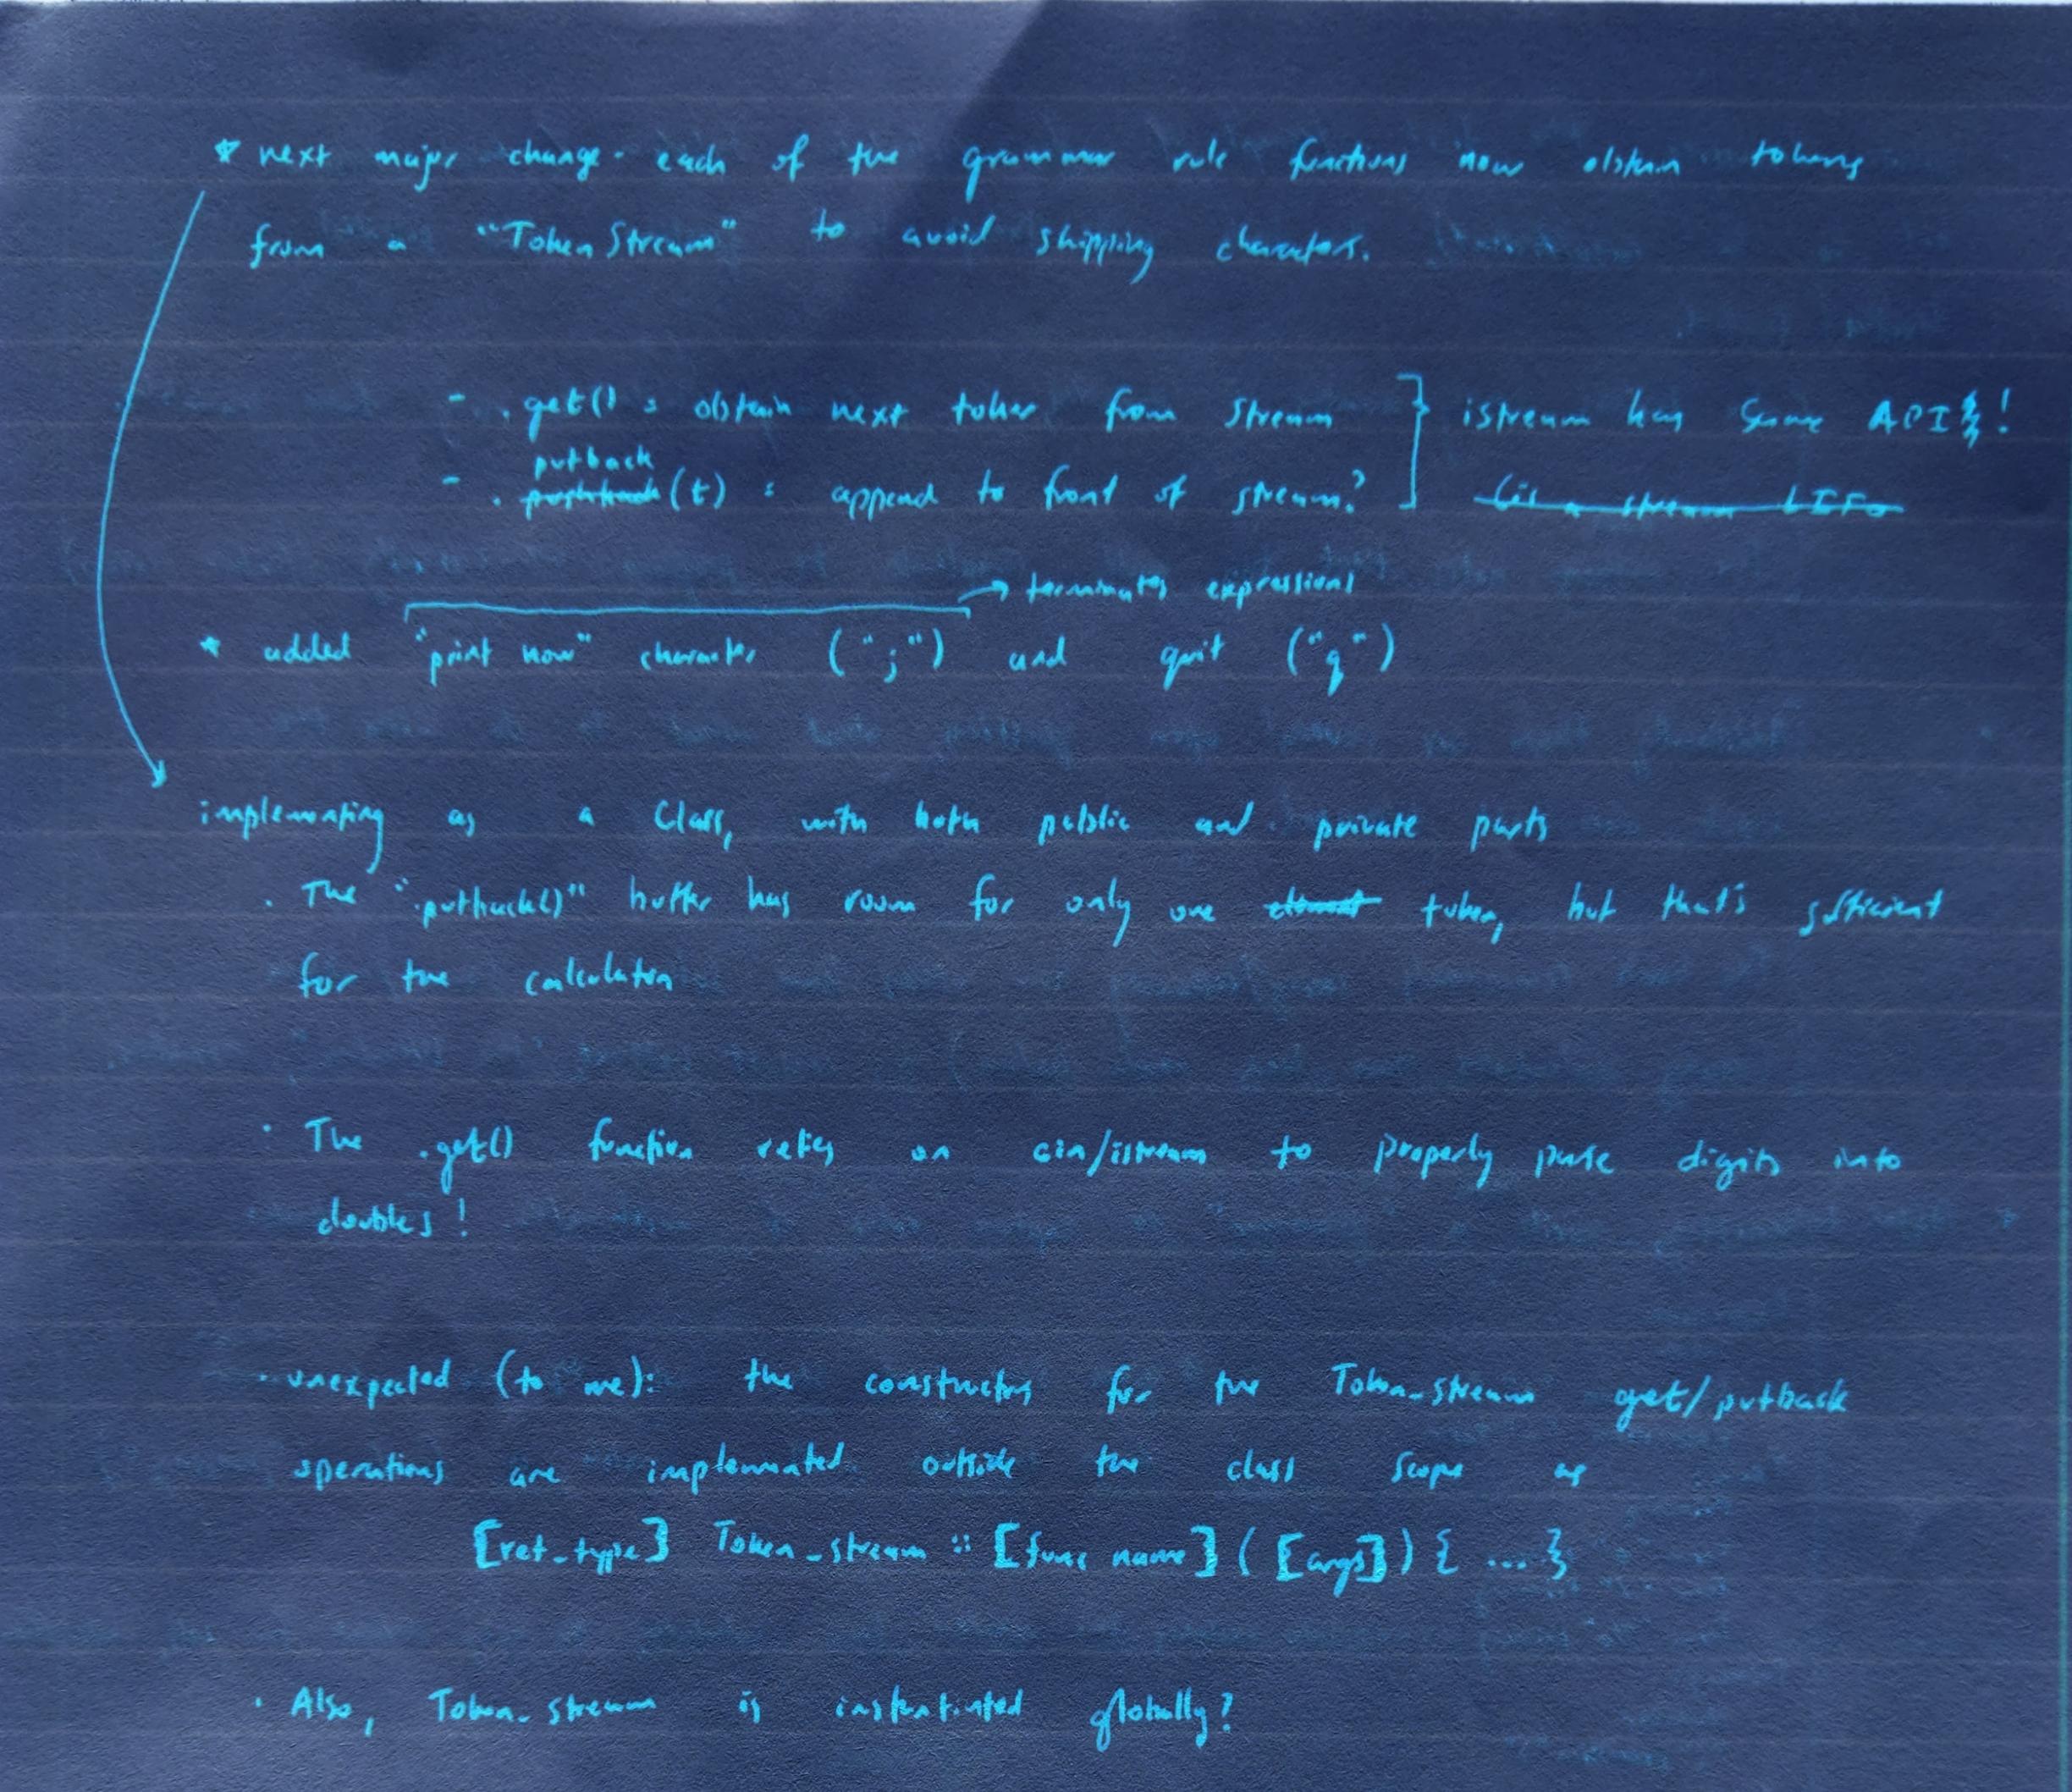 * next major change - each of the grammar rule functions now obtain tokens
from a "Token Stream" to avoid skipping characters.
- .get() : obtain next token from stream
istream has same API!
putback
- . pushback (t) : append to front of stream?
(is a stream LIFO
→ terminates expressions
* added "print now" character (";") and quit ("q")
implementing as a class, with both public and private parts
. The ".putback()" buffer has room for only one element token, but that's sufficient
for the calculator
. The .get() function relies on cin/istream to properly parse digits into
doubles!
. unexpected (to me): the constructors for the Token_stream get/putback
operations are implemented outside the class scope as
[ret_type] Token_stream :: [func name] ([args]) { ... }
. Also, Token_stream is instantiated globally?